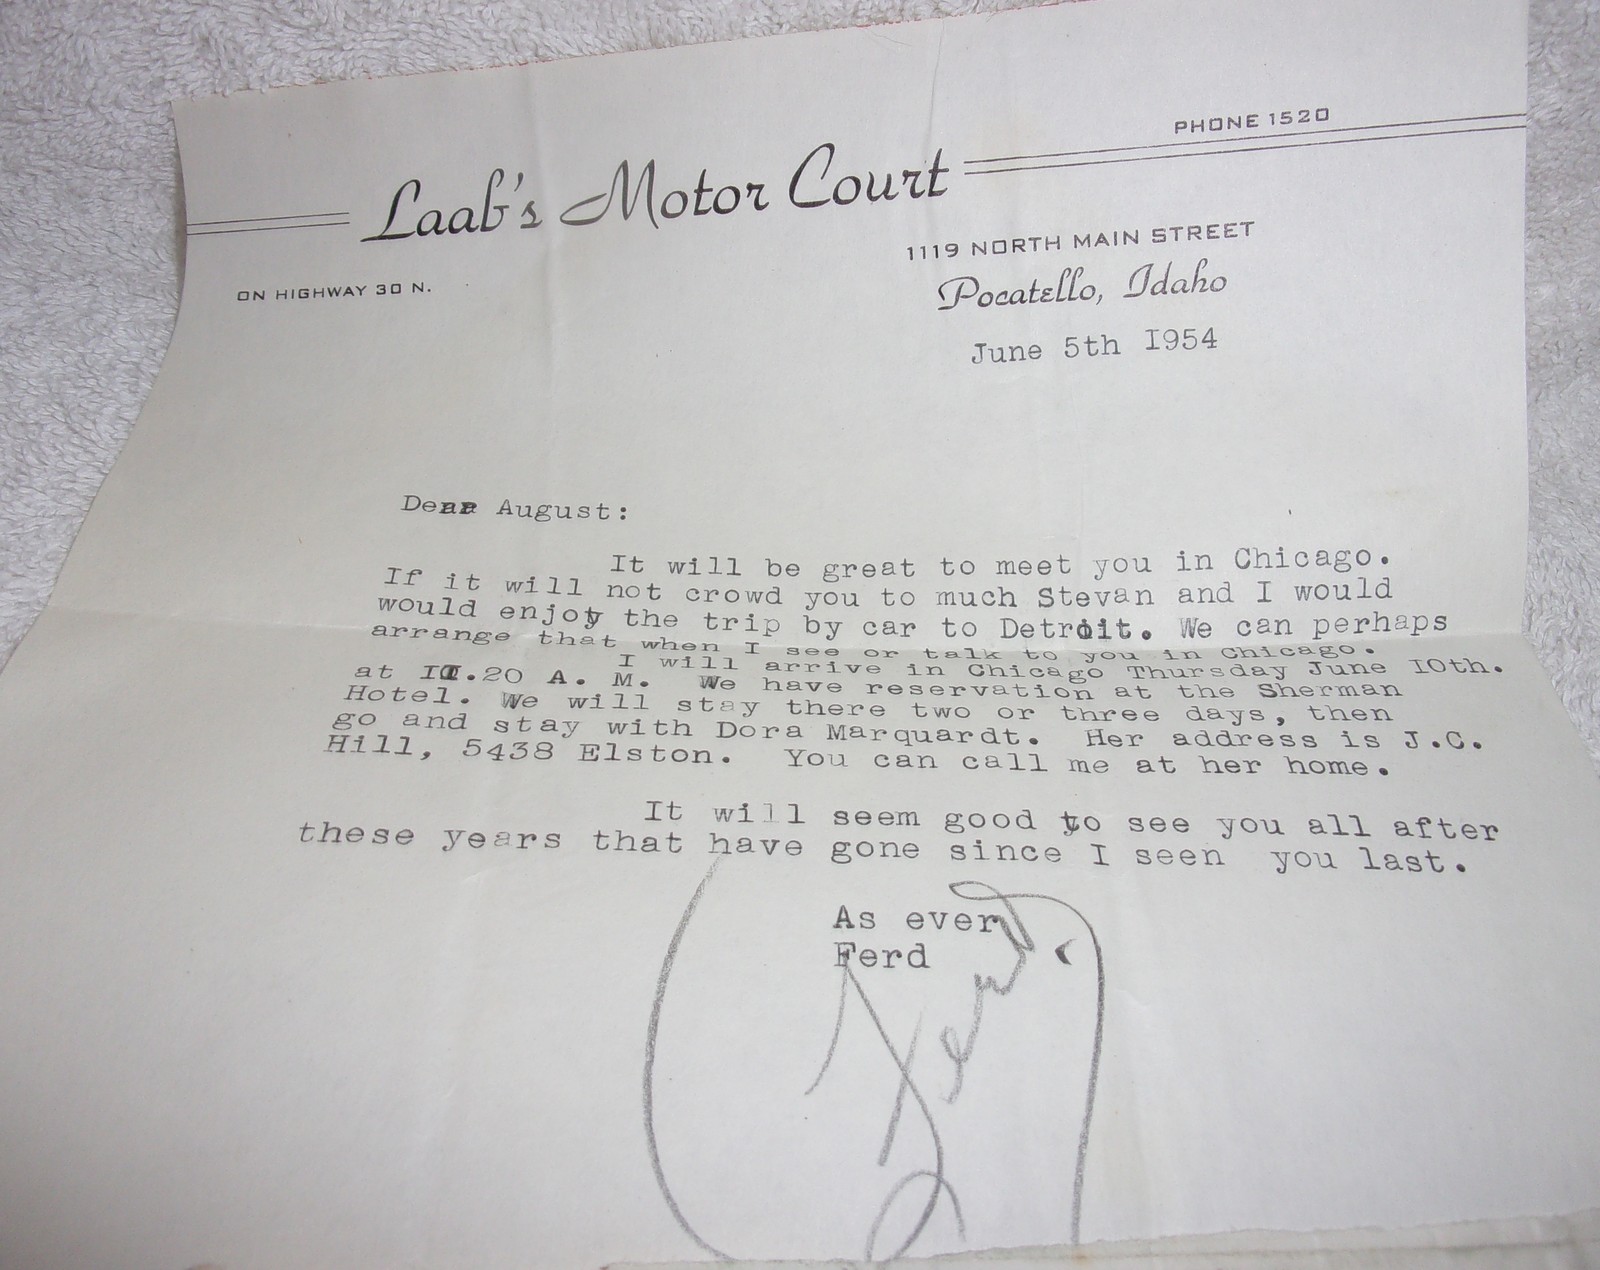 PHONE 1520
Laab's Motor Court
1119 NORTH MAIN STREET
ON HIGHWAY 30 N.
Pocatello, Idaho
June 5th I954
Dear August:
It will be great to meet you in Chicago.
If it will not crowd you to much Stevan and I would
would enjoy the trip by car to Detroit. We can perhaps
arrange that when I see or talk to you in Chicago.
I will arrive in Chicago Thursday June IOth.
at II.20 A. M. We have reservation at the Sherman
Hotel. We will stay there two or three days, then
go and stay with Dora Marquardt. Her address is J.C.
Hill, 5438 Elston. You can call me at her home.
It will seem good to see you all after
these years that have gone since I seen you last.
As ever
Ferd
Ferd